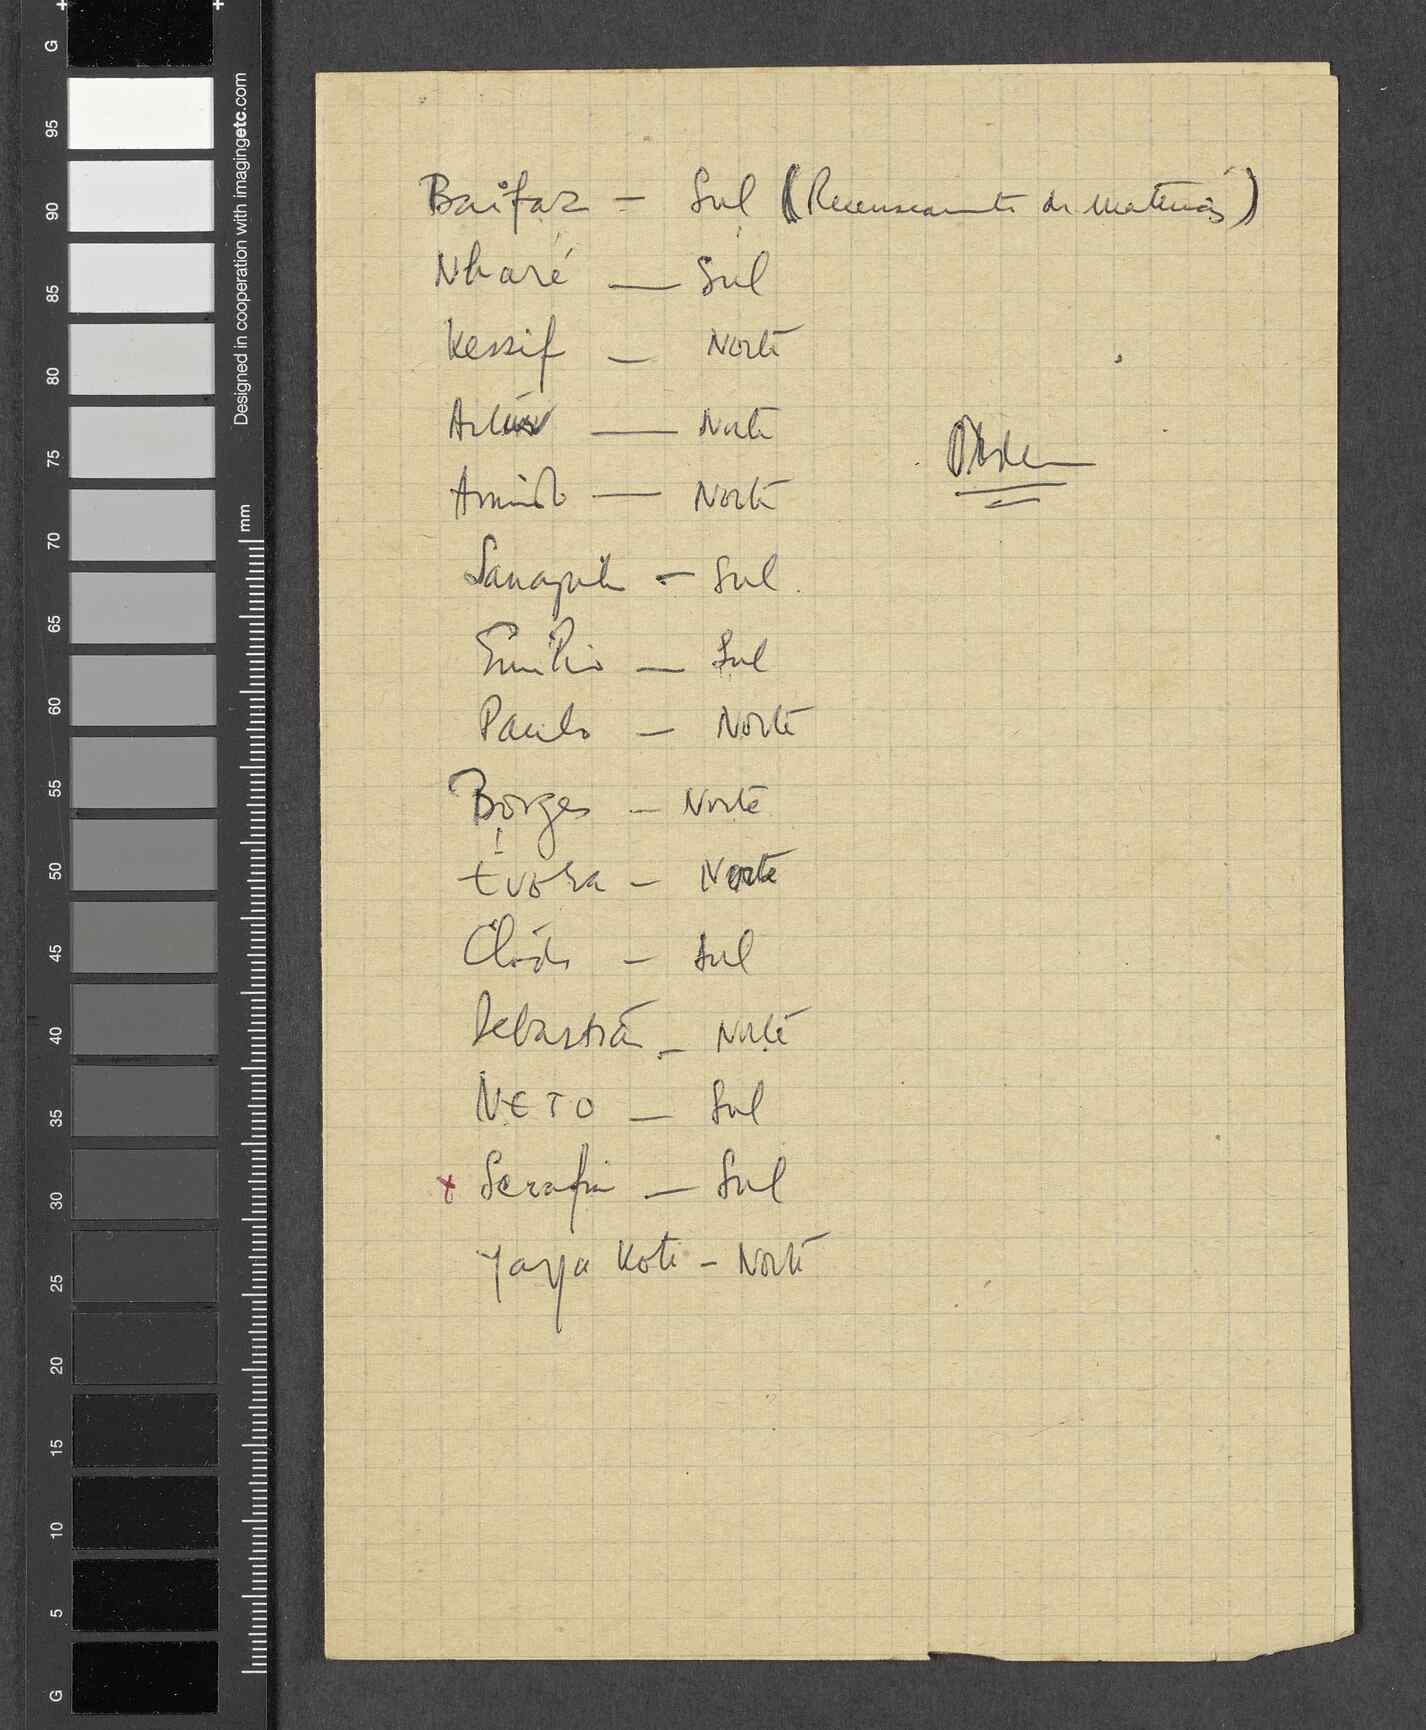 Baifaz – Sul (Recenseamento de Materiais)
Nharé — Sul
Kessif — Norte
Artur — Norte
Armindo — Norte
Sul
Emílio — Sul
Paulo — Norte
Borges — Norte
Évora – Norte
Sul
Sebastião – Norte
NETO — Sul
x Serafim — Sul
Yaya Koté – Norte
G
95
90
85
80
75
70
65
60
55
50
45
40
35
30
25
20
15
10
5
G
mm
Designed in cooperation with imagingetc.com